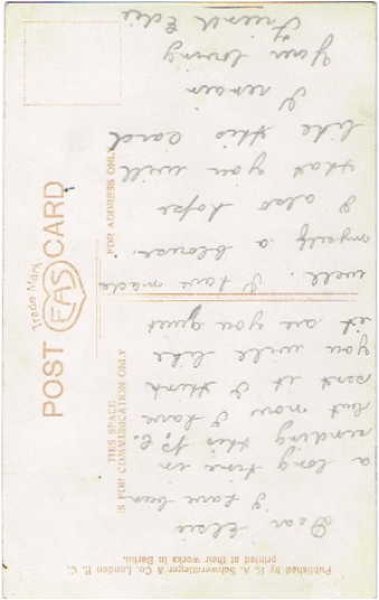 POST CARD
Trade Mark
EAS
THIS SPACE
IS FOR COMMUNICATION ONLY
FOR ADDRESS ONLY
Published by E. A. Schwerdtfeger & Co. London E. C.
printed at their Works in Berlin.
Dear Elsie
I have been
a long time in
sending this P.C.
but now I have
sent it I think
you will like
it. are you quiet
well. I have made
myself a blouse.
I also hope
that you will
like this card
I remain
Your loving
Friend Edie